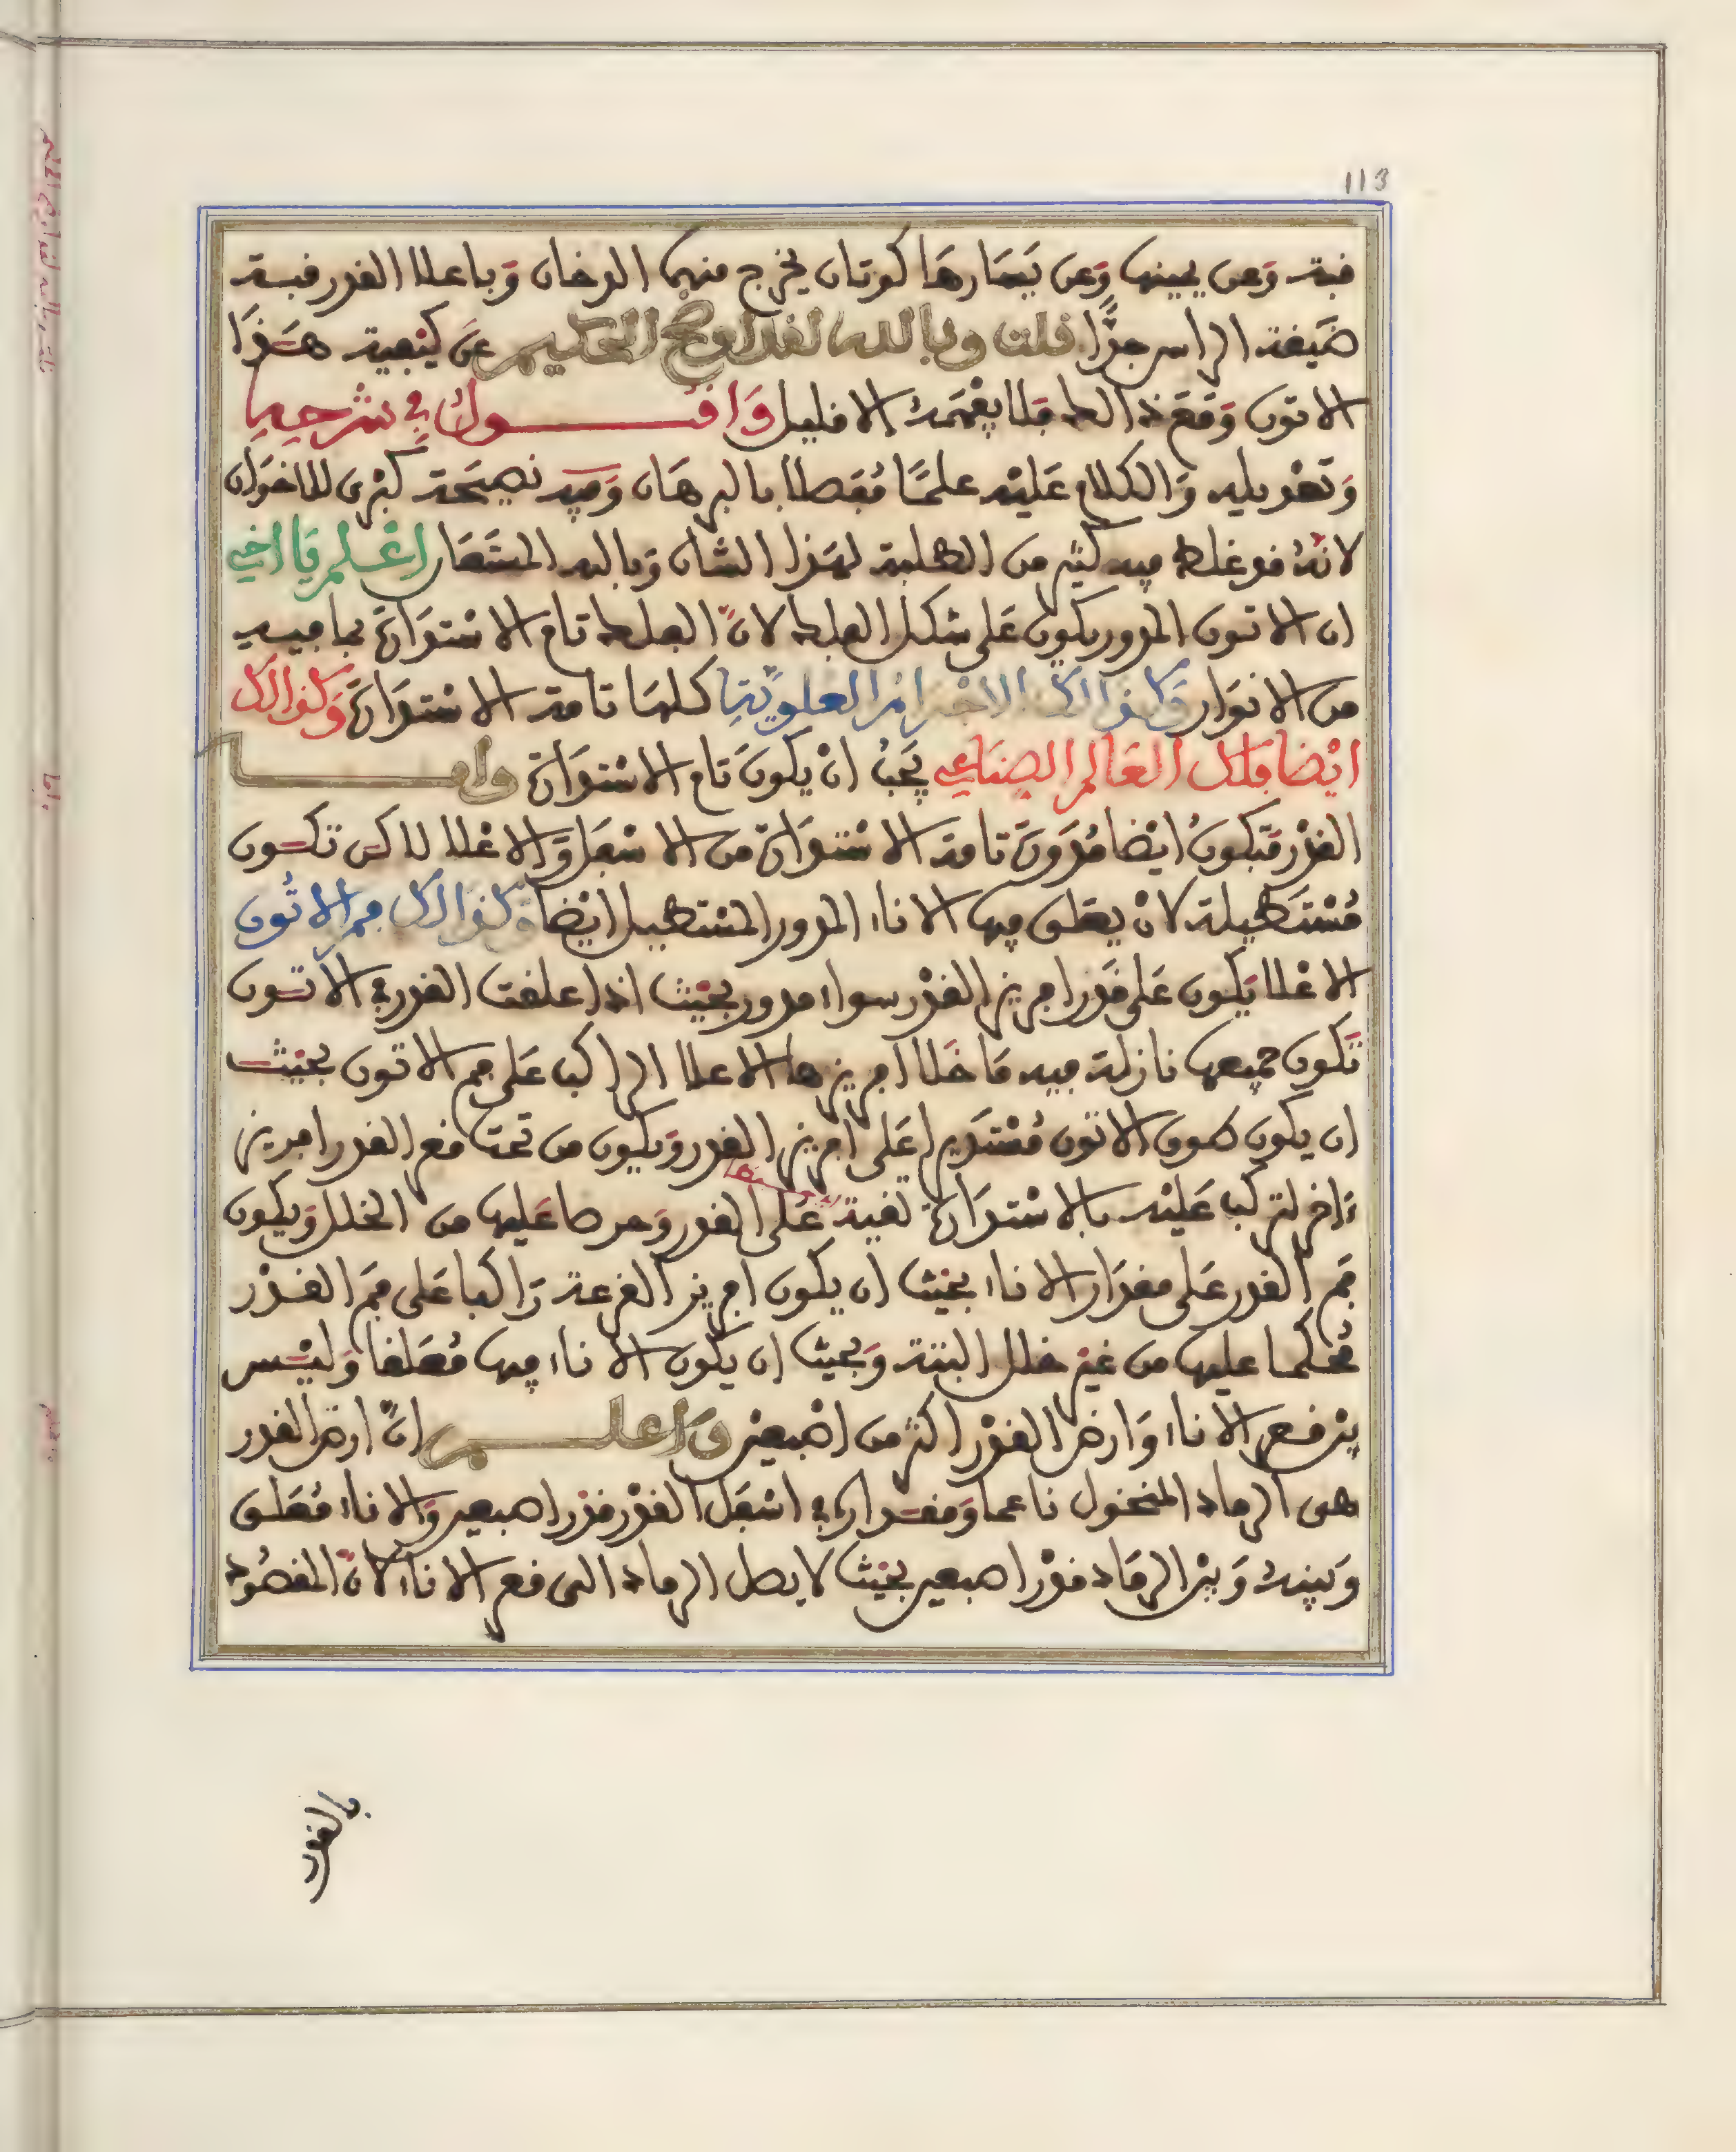 113
قبة وَعن يمينها وَعن يَسَارهَا كوتان يخرج منهما الدخان وَباعلا القدر قبة
ضَيقة الراس جدًّا قلت وبالله لقد اوضح الحكيم عَن كيْفية هَذَا
الاتون وَقَعَد ذالك فلا يفْهَمهُ الا قليل وَاقـــول في شرحها
وَتَعْويله وَالكلام عَليْه علمًا مُفصلا بالبرهَان وَفيه نصيَحة كبْرى للاخوَان
لانَّهُ قد غلط فيه كثير من الطلبة لهَذا الشان وَبالله المسْتَعَان اعْـلم يَا اخي
ان الاتون المدور يكون عَلى شكل الفلك لانَّ الفلك تام الاسْتدَارة بما فيـه
من الانوَار وَكذالك الاجْرامُ العلويّةِ كلهَا تامة الاسْتدَارة وَكذالك
ايْضا فلك العَالم الصنَاعي يَجبُ انْ يكونَ تام الاسْتدَارة وامـــا
القدْر فَتكونُ ايْضا مُدَورَة تامة الاسْتدَارة من الاسْفل وَالاعْلا لاكن تكـون
مُسْتَطيلة لانْ يعَلق فيها الاناء المدور المسْتطيل ايْضا وَكذالك فم الاتُون
الاعْلا يَكون عَلى قَدر افريز القدْر سواء مدور بحيْث اذا علقت القدر في الاتـون
تَكون جميعها نازلة فيه مَا خَلا افريزها الاعلا الراكب عَلى فم الاتون بحَيْث
ان يكون طوق الاتون مُسْتَديرا عَلى افريز القدر وَيكون من تحت قعر القدر افريز
ءاخر لتركب عَليْه بالاسْتدَارة تقية عَلى القدر وَحرصا عَليها من الخلل وَيكون
فَم القدر عَلى مقدَار الاناء بحيْث ان يكون افريز القرعة رَاكبا عَلى فَم القـدْر
مُحْكما عليها من غيْر خلل البتة وَبحيث ان يكون الاناء فيها مُعَلقا وَليْـس
بيْن قـعر الاناء وَارض القدْر اكثر من اصْبعيْن وَاعلـــم انَّ ارض القدر
هى الرماد المنخول ناعما وَمقـدَاره في اسْفل القدْر قدْر اصبعين وَالاناء مُعَلق
وَبينه وَبيْن الرمَاد قدْر اصبعين بحيْث لا يصل الرماد الى قعر الاناء لانَّ المقصُود
بالقدر